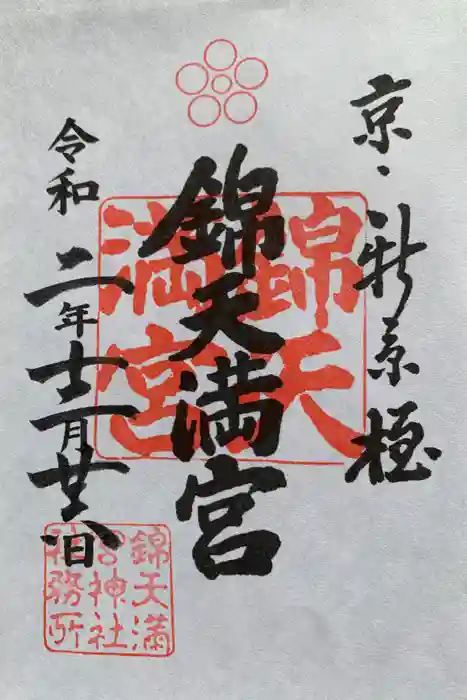 京・新京極
錦天満宮
令和二年十二月廿八日
錦天
満宮
錦天満
宮神社
社務所